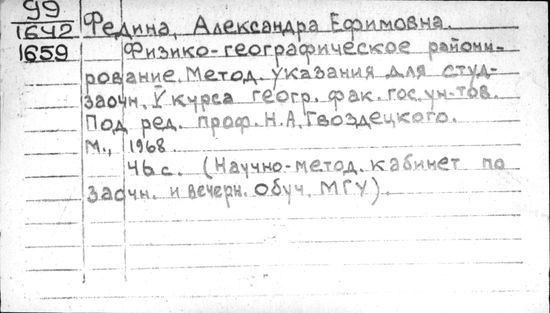 99
1642
1659
Федина, Александра Ефимовна.
Физико-географическое райони-
рование. Метод. указания для студ-
заочн. V курса геогр. фак. гос. ун-тов.
Под ред. проф. Н.А. Гвоздецкого.
М., 1968.
46 с. (Научно-метод. кабинет по
заочн. и вечерн. обуч. МГУ).